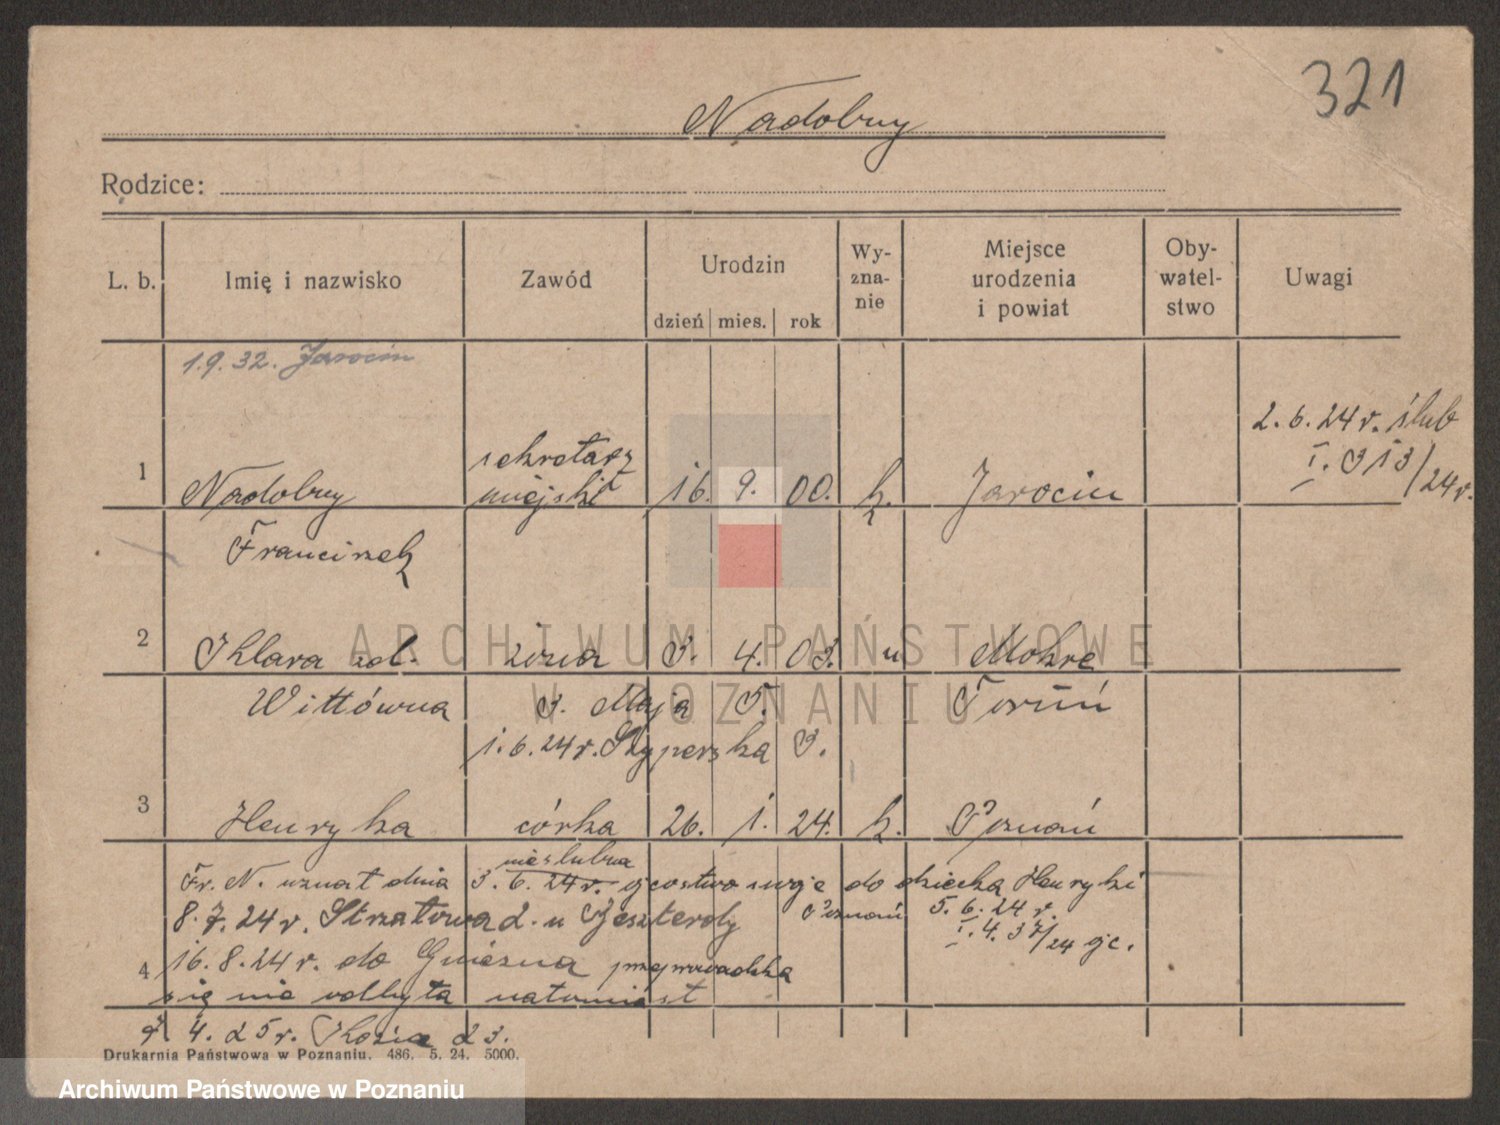 321
Nadobny
Rodzice:
L. b. Imię i nazwisko Zawód Urodzin Wy-zna-nie Miejsce urodzenia i powiat Oby-watel-stwo Uwagi
dzień mies. rok
1.9.32. Jarocin
2. 6. 24 r. ślub
sekretarz
I. 313/24 r.
1 Nadobny miejski 16. 9. 00. k. Jarocin
Franciszek
2 Klara zd. żona 3. 4. 03. u Mokre
Wittówna 3. Maja 5. Toruń
1. 6. 24 r. Szyperska 3.
3 Henryka córka 26. 1. 24. k. Poznań
nieślubna
Fr. N. uznał dnia 3. 6. 24 r. ojcostwo swoje do dziecka Henryki
8. 7. 24 r. Strzałowa 2. u Poznań 5. 6. 24 r.
I. 4. 37/24 gc.
4 16. 8. 24 r. do Gniezna przeprowadzka
się nie odbyła natomiast
4. 25 r. 23.
Drukarnia Państwowa w Poznaniu. 486. 5. 24. 5000.
ARCHIWUM PAŃSTWOWE
W POZNANIU
Archiwum Państwowe w Poznaniu